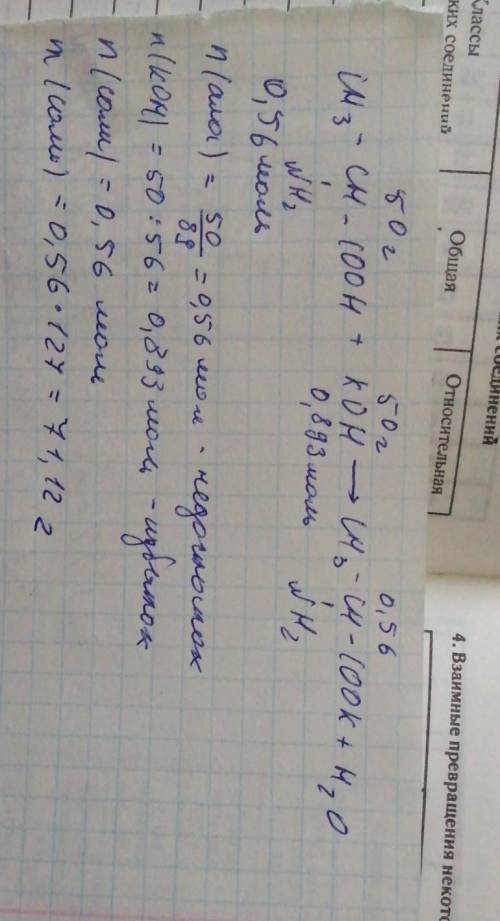 Классы
ких соединений
Общая
Относительная
соединений
4. Взаимные превращения некото
50 г 50 г 0,56
CH₃ - CH - COOH + KOH → CH₃ - CH - COOK + H₂O
NH₂ 0,893 моль NH₂
0,56 моль
n(ала) = 50/89 = 0,56 мол - недостаток
n(KOH) = 50 : 56 = 0,893 моль - избыток
n(соли) = 0,56 моль
m(соли) = 0,56 · 127 = 71,12 г